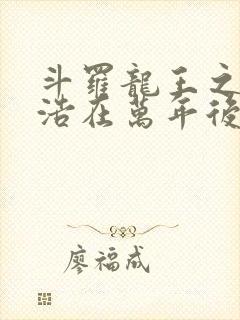 斗羅龍王之
浩在萬年後
廖福成